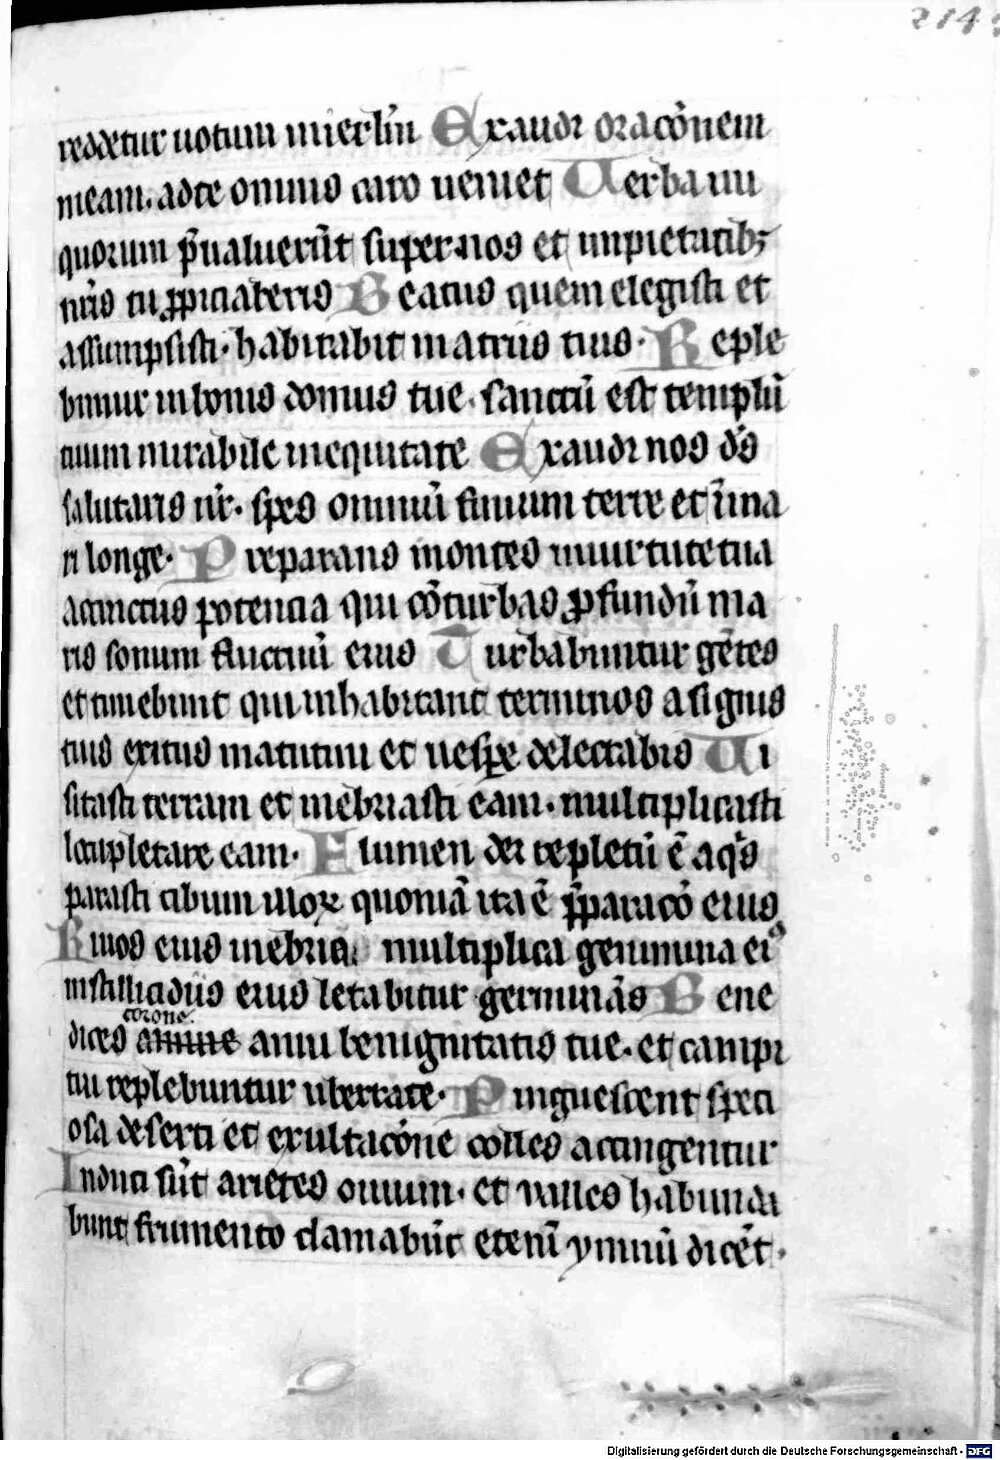 214
reddetur uotum in ierl̄m Exaudi orac̄onem
meam. ad te omnis caro ueniet Uerba ini
quorum p̄ualuerūt super nos et impietatib;
nr̄is tu ꝓpiciaberis Beatus quem elegisti et
assumpsisti. habitabit in atriis tuis. Reple
bimur in bonis domus tue. sanctū est templū
tuum mirabile in equitate Exaudi nos ds̄
salutaris nr̄. spes omniū finium terre et ī ma
ri longe. Preparans montes in uirtute tua
accinctus potencia qui cōturbas ꝓfundū ma
ris sonum fluctuū eius Turbabuntur gētes
et timebunt qui inhabitant terminos a signis
tuis exitus matutini et uesꝑe delectabis Ui
sitasti terram et inebriasti eam. multiplicasti
locupletare eam. Flumen dei repletū ē aqͥs
parasti cibum illoꝝ quoniā ita ē p̄paracō eius
Riuos eius inebria. multiplica genimina eiꝰ
in stillicidiis eius letabitur germinās Bene
corone.
dices anime anni benignitatis tue. et campi
tui replebuntur ubertate. Pinguescent speci
osa deserti et exultac̄one colles accingentur
Induti sūt arietes ouium. et ualles habunda
bunt frumento clamabūt etenī ymnū dicēt.
Digitalisierung gefördert durch die Deutsche Forschungsgemeinschaft - DFG